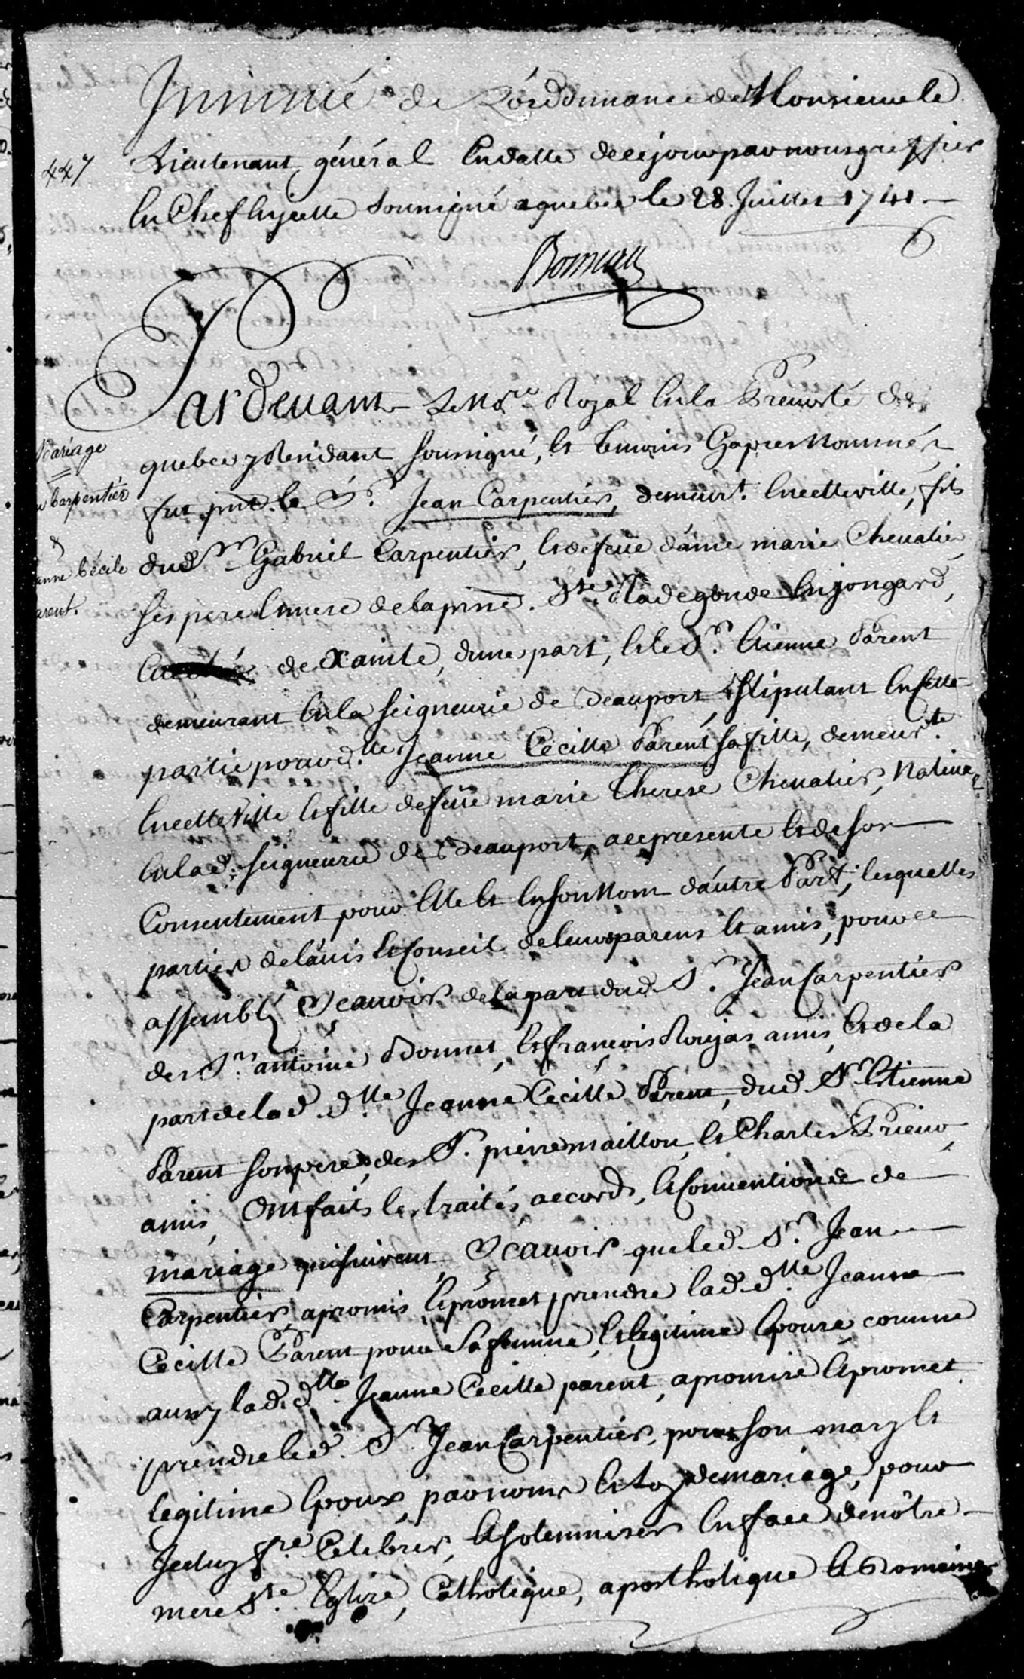 Insinué de L'ordonnance de Monsieur le
447
Lieutenant général En datte de ce jour par nous greffier
En Chef Soussigné a quebec le 28 Juillet 1741.
Boisseau
Pardevant Le No.re Royal En la Prevosté de
Mariage
quebec y Residant soussigné, Et temoins Cy apres Nommés
Carpentier
fut pnt. le S.r Jean Carpentier, demeur.t En cette ville, fils
&
du d. S.r Gabriel Carpentier, Et de feue dame marie Chevalier
Cécile
ses pere Et mere de la pnne. S.te Radegonde
arent.
de Xainte, d'une part, Et le S.r Etienne Parent
demeurant En la seigneurie de Beauport, Stipulant En cette
partie pour d.lle Jeanne Cecille Parent sa fille, demeur.te
En cette Ville Et fille de feüe marie therese Chevalier, Native
En la d. seigneurie de Beauport, a ce presente Et de son
Consentement pour Elle Et En son Nom d'autre Part, lesquelles
parties de l'avis Et Conseil de leurs parens Et amis, pour ce
assemblés Scavoir de la part du d. S.r Jean Carpentier
des S.rs antoine Bonnet, Et francois amis, Et de la
part de la d. d.lle Jeanne Cecille Parent, du d. S.r Etienne
Parent son pere, des S.r pierre maillou, Et Charles Prieur
amis, Ont faits Les traités accords, Et Conventions de
mariage qui suivent Scavoir que le d. S.r Jean
Carpentier, a promis Et promet prendre la d. d.lle Jeanne
Cecille Parent pour Sa femme, Et legitime Epouse comme
aussy la d. d.lle Jeanne Cecille parent, a promise Et promet
prendre le d. S.r Jean Carpentier, pour son mary Et
legitime Epoux, par nom Et loy de mariage, pour
Iceluy f.re Celebrer, Et solemniser En face de nôtre
mere S.te Eglise, Catholique, aposthotique Et Romaine